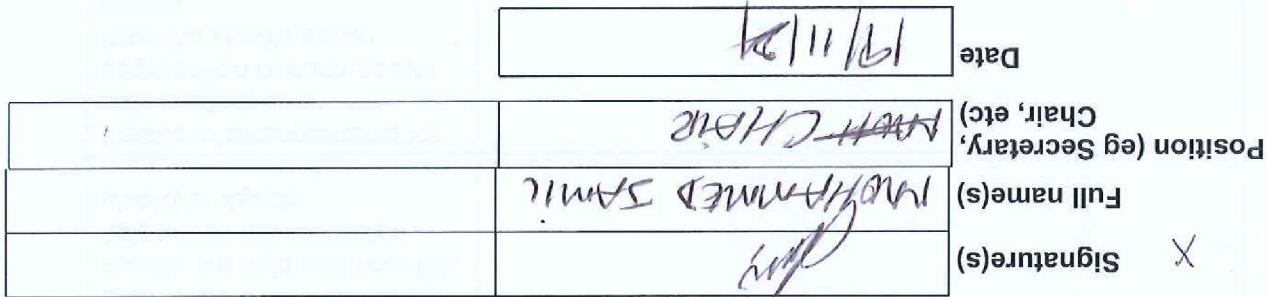 X Signature(s)
Full name(s) MOHAMMED SAMIL
Position (eg Secretary, Chair, etc) CHAIR
Date 19/11/21